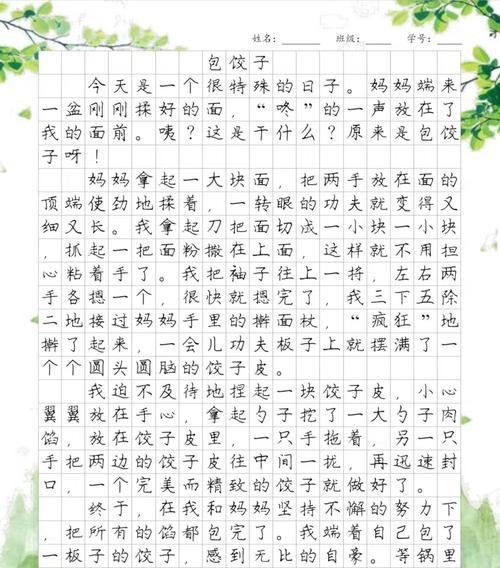 姓名： 班级： 学号：
包饺子
今天是一个很特殊的日子。妈妈端来
一盆刚刚揉好的面，“咚”的一声放在了
我的面前。咦？这是干什么？原来是包饺
子呀！
妈妈拿起一大块面，把两手放在面的
顶端使劲地揉着，一转眼的功夫就变得又
细又长。我拿起刀把面切成一小块一小块
，抓起一把面粉撒在上面，这样就不用担
心粘着手了。我把袖子往上一捋，左右两
手各摁一个，很快就摁完了，我三下五除
二地接过妈妈手里的擀面杖，“疯狂”地
擀了起来，一会儿功夫板子上就摆满了一
个个圆头圆脑的饺子皮。
我迫不及待地捏起一块饺子皮，小心
翼翼放在手心，拿起勺子挖了一大勺子肉
馅，放在饺子皮里，一只手拖着，另一只
手把两边的饺子皮往中间一拢，再迅速封
口，一个完美而精致的饺子就做好了。
终于，在我和妈妈坚持不懈的努力下
，把所有的馅都包完了。我端着自己包了
一板子的饺子，感到无比的自豪。等锅里